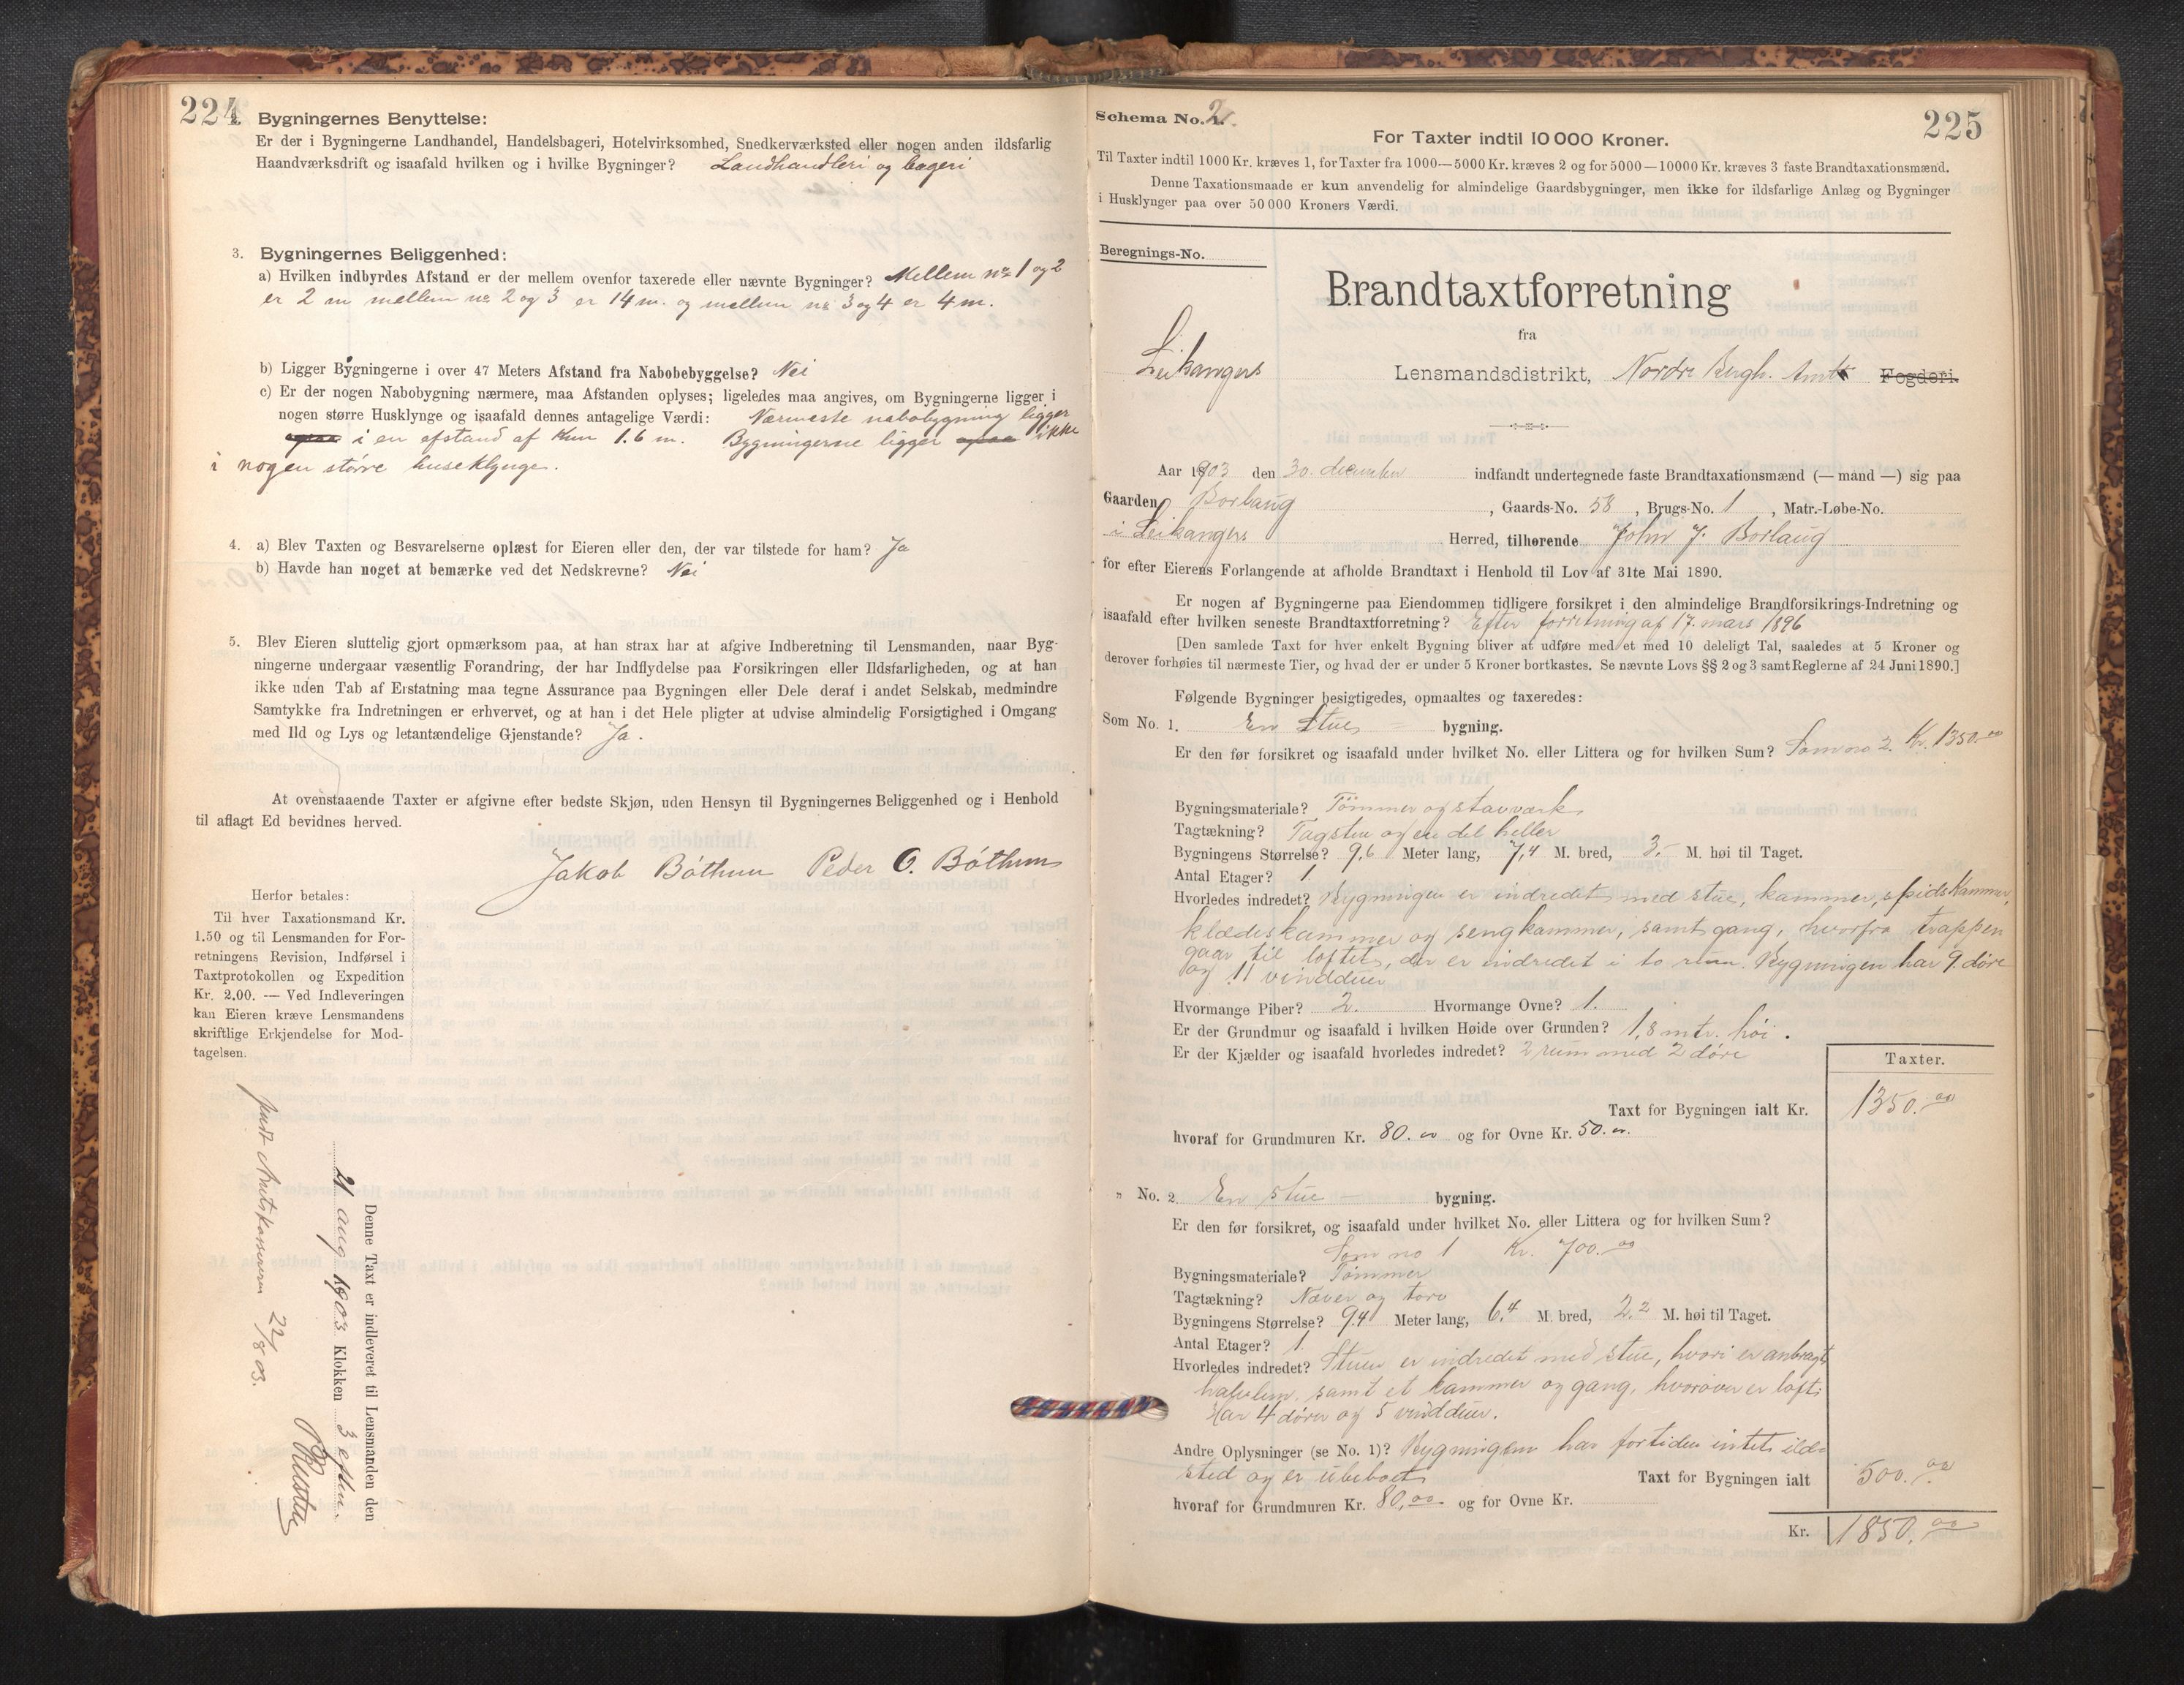 224
Bygningernes Benyttelse:
Er der i Bygningerne Landhandel, Handelsbageri, Hotelvirksomhed, Snedkerværksted eller nogen anden ildsfarlig
Haandværksdrift og isaafald hvilken og i hvilke Bygninger? Landhandleri og bageri
3. Bygningernes Beliggenhed:
a) Hvilken indbyrdes Afstand er der mellem ovenfor taxerede eller nævnte Bygninger? Mellem no 1 og 2
er 2 m mellem no 2 og 3 er 14 m. og mellem no 3 og 4 er 4 m.
b) Ligger Bygningerne i over 47 Meters Afstand fra Nabobebyggelse? Nei
c) Er der nogen Nabobygning nærmere, maa Afstanden oplyses; ligeledes maa angives, om Bygningerne ligger i
nogen større Husklynge og isaafald dennes antagelige Værdi: Nærmeste nabobygning ligger
i en afstand af kun 1.6 m. Bygningerne ligger ikke
i nogen større huseklynge.
4. a) Blev Taxten og Besvarelserne oplæst for Eieren eller den, der var tilstede for ham? Ja
b) Havde han noget at bemærke ved det Nedskrevne? Nei
5. Blev Eieren sluttelig gjort opmærksom paa, at han strax har at afgive Indberetning til Lensmanden, naar Byg-
ningerne undergaar væsentlig Forandring, der har Indflydelse paa Forsikringen eller Ildsfarligheden, og at han
ikke uden Tab af Erstatning maa tegne Assurance paa Bygningen eller Dele deraf i andet Selskab, medmindre
Samtykke fra Indretningen er erhvervet, og at han i det Hele pligter at udvise almindelig Forsigtighed i Omgang
med Ild og Lys og letantændelige Gjenstande? Ja.
At ovenstaaende Taxter er afgivne efter bedste Skjøn, uden Hensyn til Bygningernes Beliggenhed og i Henhold
til aflagt Ed bevidnes herved.
Jakob Bóthun Peder O. Bóthun
Herfor betales:
Til hver Taxationsmand Kr.
1.50 og til Lensmanden for For-
retningens Revision, Indførsel i
Taxtprotokollen og Expedition
Kr. 2.00. — Ved Indleveringen
kan Eieren kræve Lensmandens
skriftlige Erkjendelse for Mod-
tagelsen.
Denne Taxt er indleveret til Lensmanden den
21 aug 1903. Klokken 3 efm.
Amtskassereren 22/8 03.
225
Schema No. 2.
For Taxter indtil 10 000 Kroner.
Til Taxter indtil 1000 Kr. kræves 1, for Taxter fra 1000—5000 Kr. kræves 2 og for 5000—10000 Kr. kræves 3 faste Brandtaxationsmænd.
Denne Taxationsmaade er kun anvendelig for almindelige Gaardsbygninger, men ikke for ildsfarlige Anlæg og Bygninger
i Husklynger paa over 50 000 Kroners Værdi.
Beregnings-No.
Brandtaxtforretning
fra
Leikangers Lensmandsdistrikt, Nordre Bergh. Amt Fogderi.
Aar 1903 den 30. december indfandt undertegnede faste Brandtaxationsmænd (— mand —) sig paa
Gaarden Borlaug, Gaards-No. 58, Brugs-No. 1, Matr.-Løbe-No.
i Leikangers Herred, tilhørende John J. Borlaug
for efter Eierens Forlangende at afholde Brandtaxt i Henhold til Lov af 31te Mai 1890.
Er nogen af Bygningerne paa Eiendommen tidligere forsikret i den almindelige Brandforsikrings-Indretning og
isaafald efter hvilken seneste Brandtaxtforretning? Efter forretning af 17. mars 1896
[Den samlede Taxt for hver enkelt Bygning bliver at udføre med et med 10 deleligt Tal, saaledes at 5 Kroner og
derover forhøies til nærmeste Tier, og hvad der er under 5 Kroner bortkastes. Se nævnte Lovs §§ 2 og 3 samt Reglerne af 24 Juni 1890.]
Følgende Bygninger besigtigedes, opmaaltes og taxeredes:
Som No. 1. En Stue bygning.
Er den før forsikret og isaafald under hvilket No. eller Littera og for hvilken Sum? Som no 2. Kr. 1350.00
Bygningsmateriale? Tömmer og stavværk
Tagtækning? Tagsten og en del heller
Bygningens Størrelse? 9,6 Meter lang, 7,4 M. bred, 3.- M. høi til Taget.
Antal Etager? 1
Hvorledes indredet? Bygningen er indredet med stue, kammer, spidskammer,
klædeskammer og sengkammer, samt gang, hvorfra trappen
gaar til loftet, der er indredet i to rum. Bygningen har 9 döre
og 11 vinduer
Hvormange Piber? 2. Hvormange Ovne? 1.
Er der Grundmur og isaafald i hvilken Høide over Grunden? 1,8 mtr. høi.
Er der Kjælder og isaafald hvorledes indredet? 2 rum med 2 döre
Taxter.
Taxt for Bygningen ialt Kr. 1350.00
hvoraf for Grundmuren Kr. 80.00 og for Ovne Kr. 50.00
„ No. 2. En stue bygning.
Er den før forsikret, og isaafald under hvilket No. eller Littera og for hvilken Sum?
Som no 1 Kr. 700.00
Bygningsmateriale? Tömmer
Tagtækning? Næver og torv
Bygningens Størrelse? 9,4 Meter lang, 6,4 M. bred, 2,2 M. høi til Taget.
Antal Etager? 1
Hvorledes indredet? Stuen er indredet med stue, hvori er anbragt
samt et kammer og gang, hvorover er loft.
Har 4 döre og 5 vindduer.
Andre Oplysninger (se No. 1)? Bygningen har fortiden intet ild-
sted og er ubeboet Taxt for Bygningen ialt 500.00
hvoraf for Grundmuren Kr. 80,00 og for Ovne Kr.
Kr. 1850.00